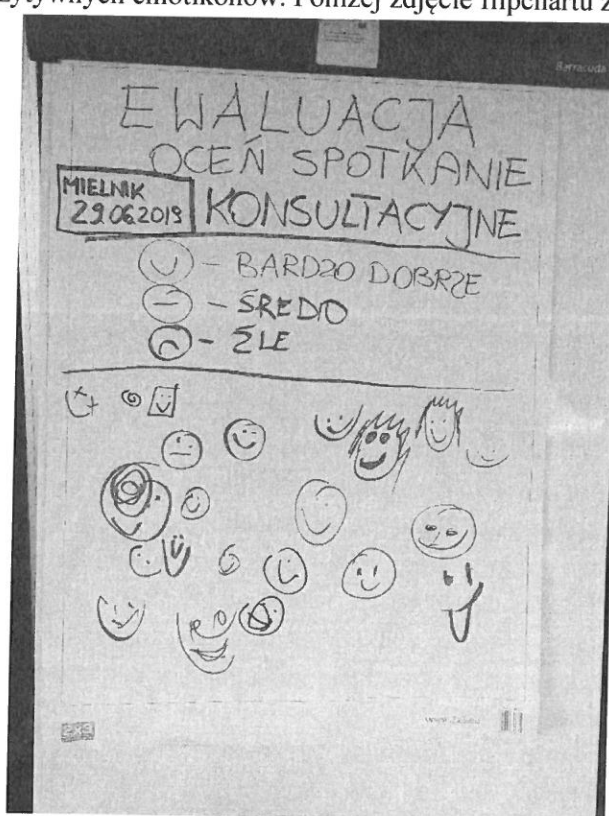 zytywnych emotikonów. Poniżej zdjęcie flipchartu z
Barracuda
EWALUACJA
OCEŃ SPOTKANIE
MIELNIK
29.06.2019
KONSULTACYJNE
- BARDZO DOBRZE
- ŚREDIO
- ŹLE